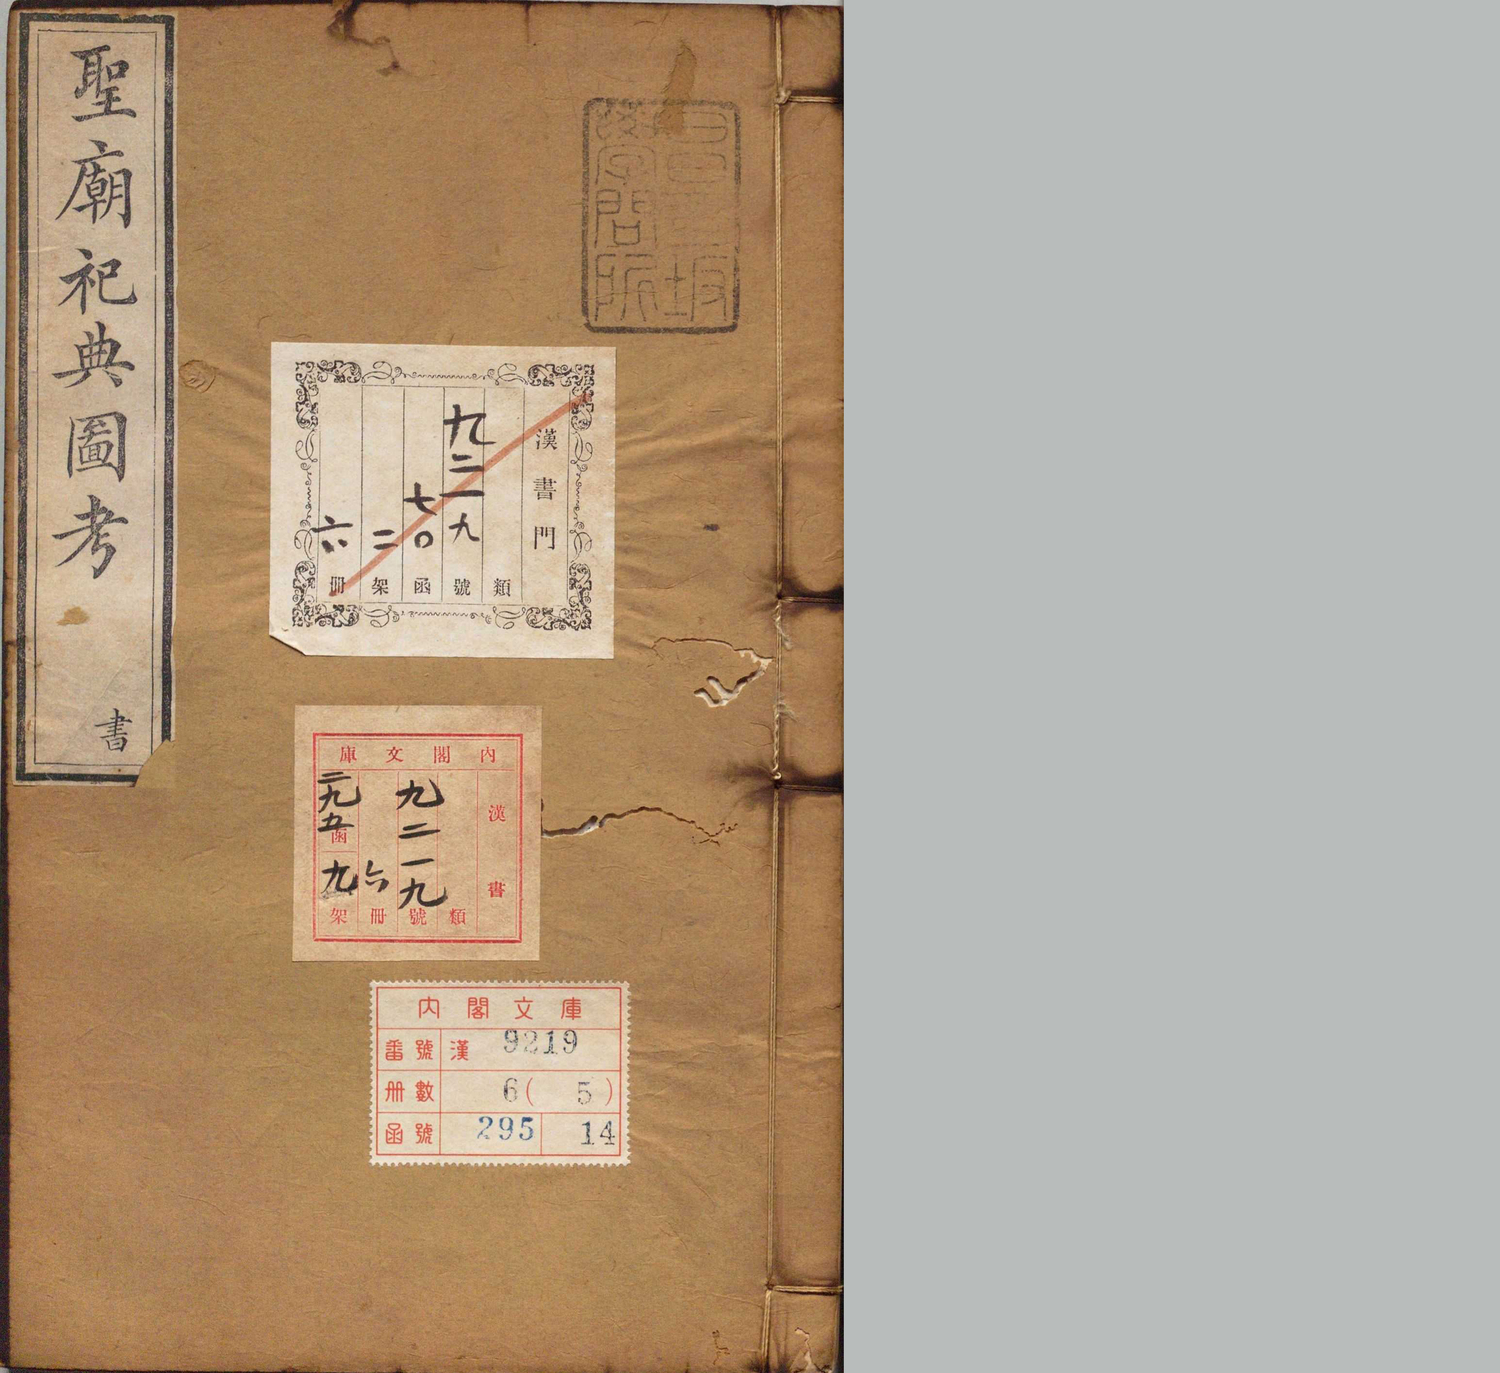 聖廟祀典圖考
書
昌平坂
學問所
漢書門
類
九二一九號
七〇函
二架
六冊
內閣文庫
漢書
類
九二一九號
六冊
二九五函
九架
內閣文庫
番號 漢 9219
冊數 6( 5 )
函號 295 14